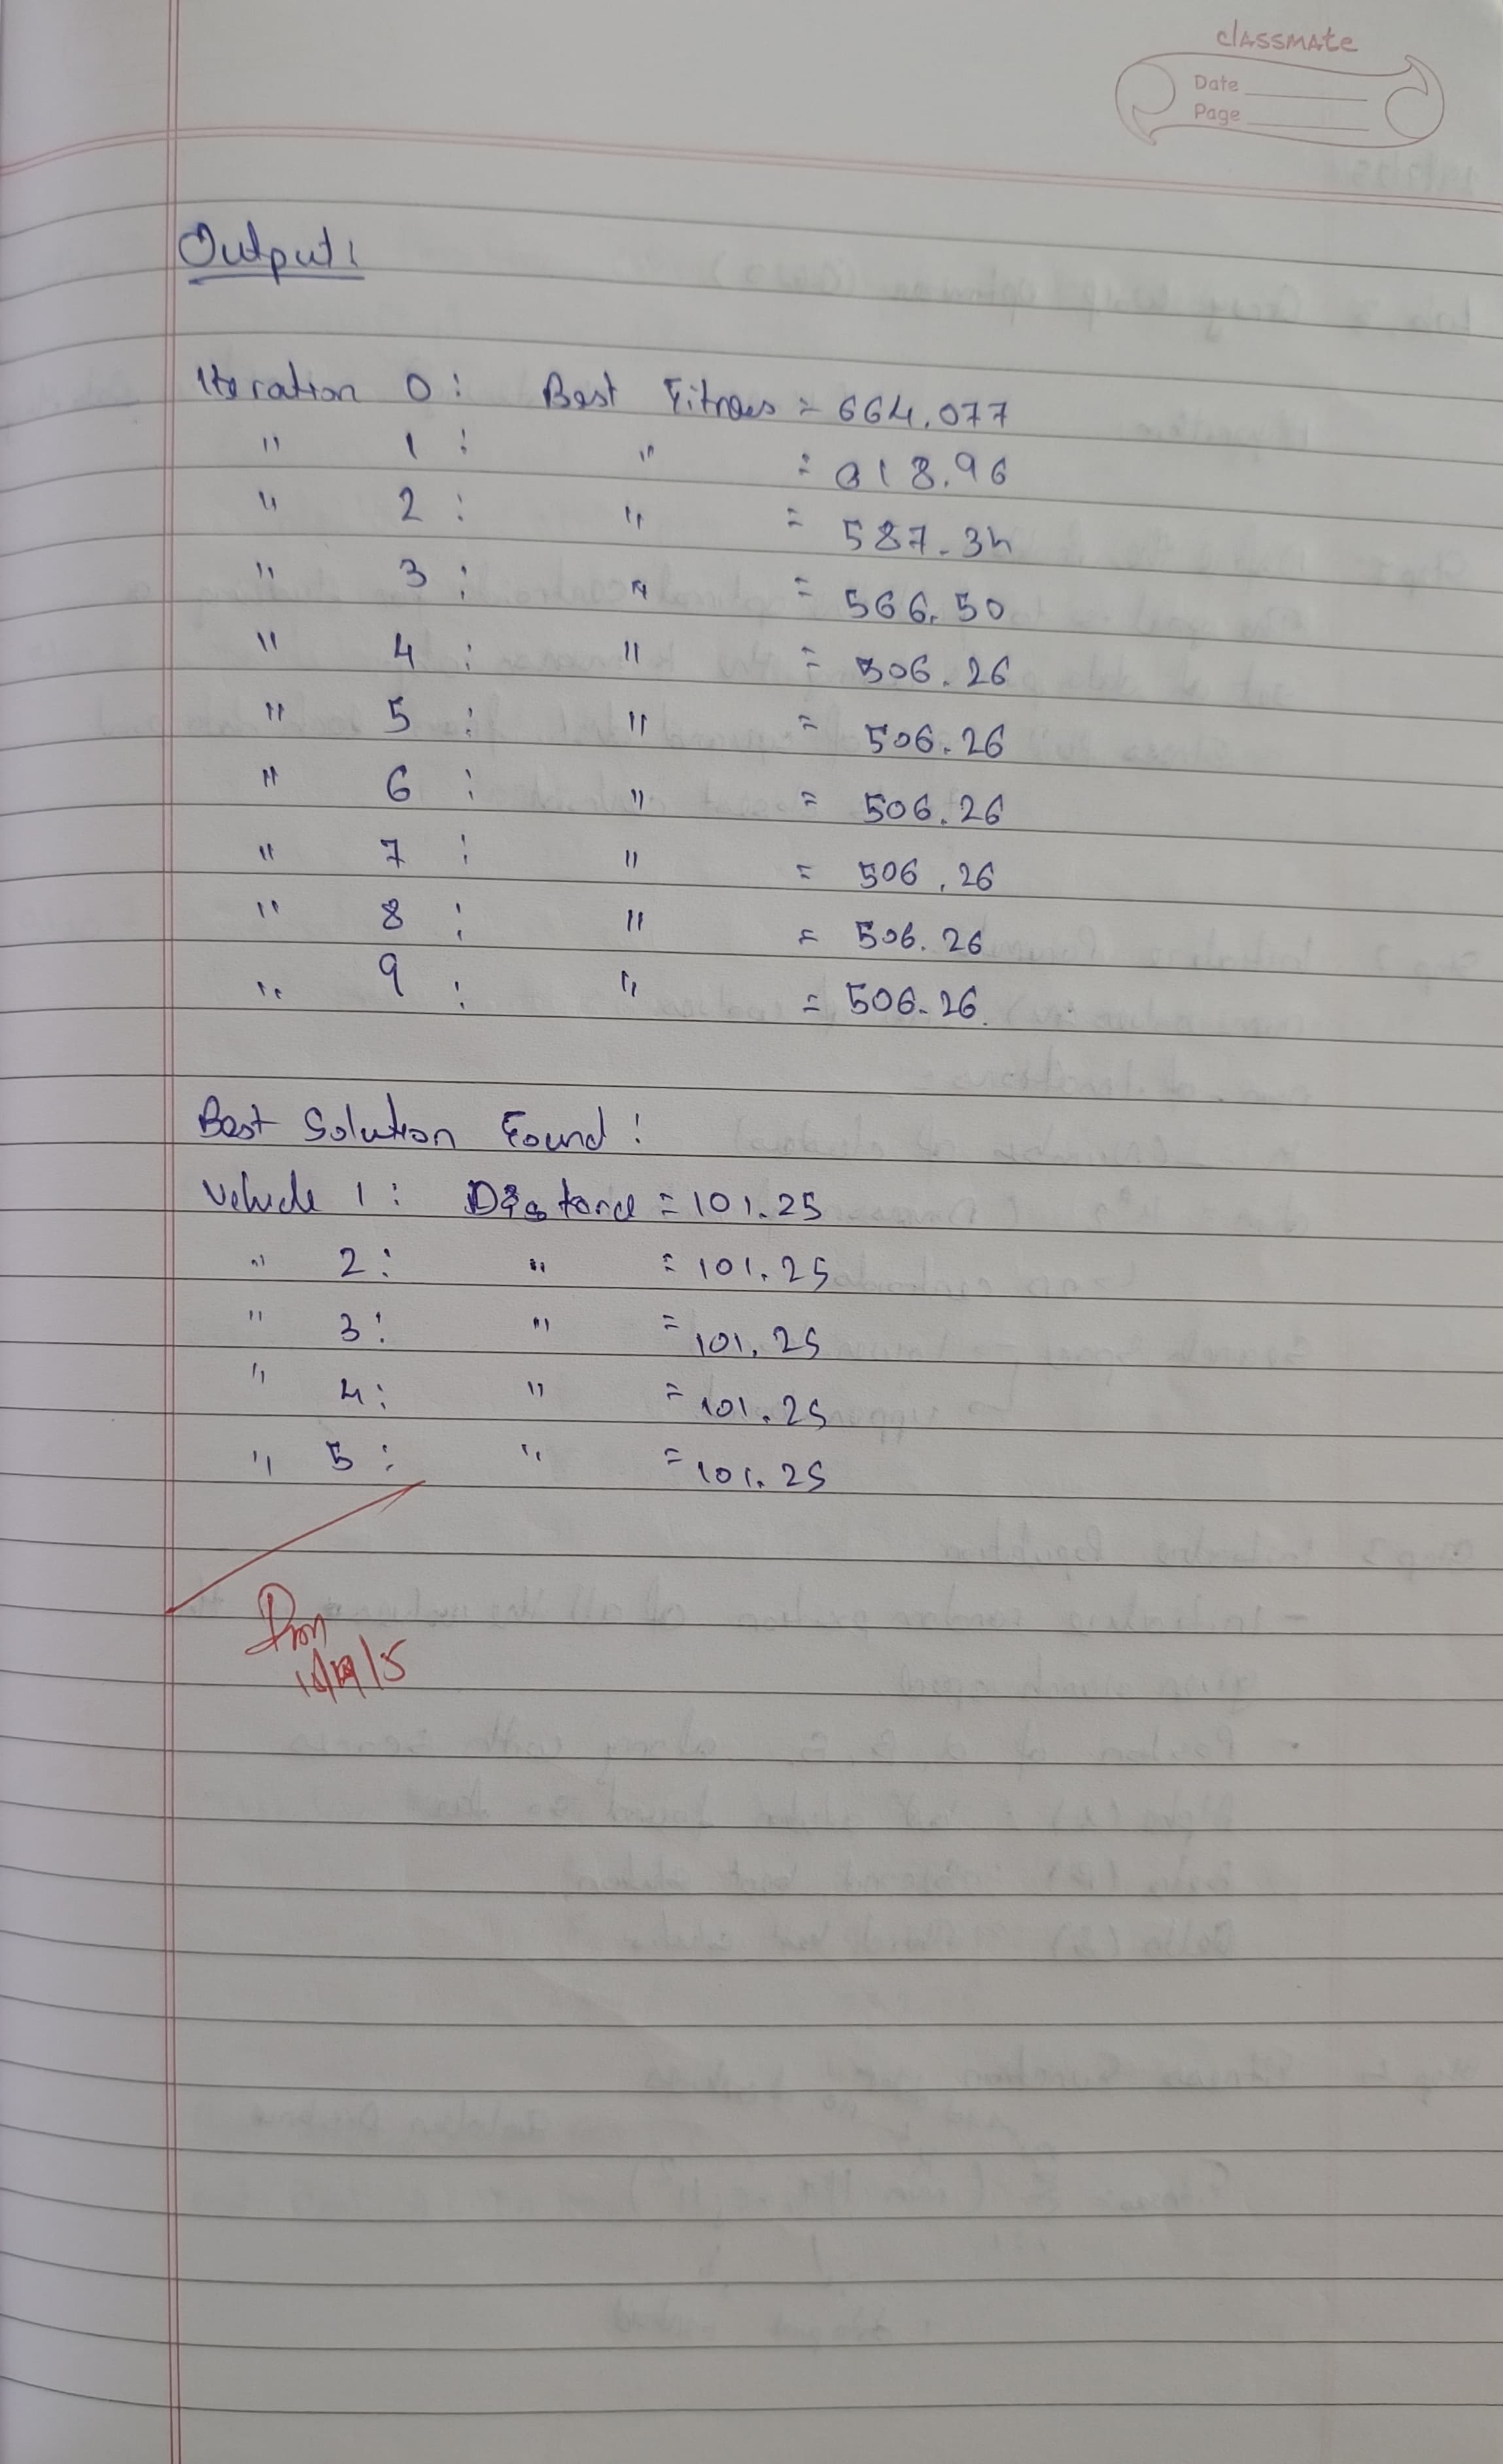 classmate
Date
Page
Output:
Iteration 0 : Best Fitness = 664.077
" 1 : " = 618.96
" 2 : " = 587.34
" 3 : " = 566.50
" 4 : " = 506.26
" 5 : " = 506.26
" 6 : " = 506.26
" 7 : " = 506.26
" 8 : " = 506.26
" 9 : " = 506.26.
Best Solution Found :
Vehicle 1 : Distance = 101.25
" 2 : " = 101.25
" 3 : " = 101.25
" 4 : " = 101.25
" 5 : " = 101.25